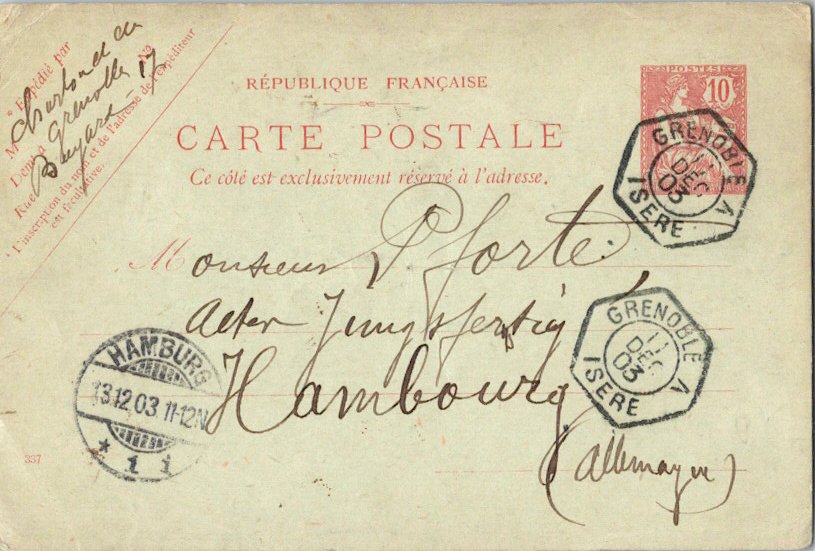 * Expédié par
M
Demt à Grenoble
Rue Bayard No 17
* L'inscription du nom et de l'adresse de l'expéditeur
est facultative.
RÉPUBLIQUE FRANÇAISE
CARTE POSTALE
Ce côté est exclusivement réservé à l'adresse.
POSTES
10
GRENOBLE A
11
DEC
03
ISERE
Monsieur Pforte
Hambourg
(Allemagne)
GRENOBLE A
11
DEC
03
ISERE
HAMBURG
13.12.03 11-12N
* 1 i
337